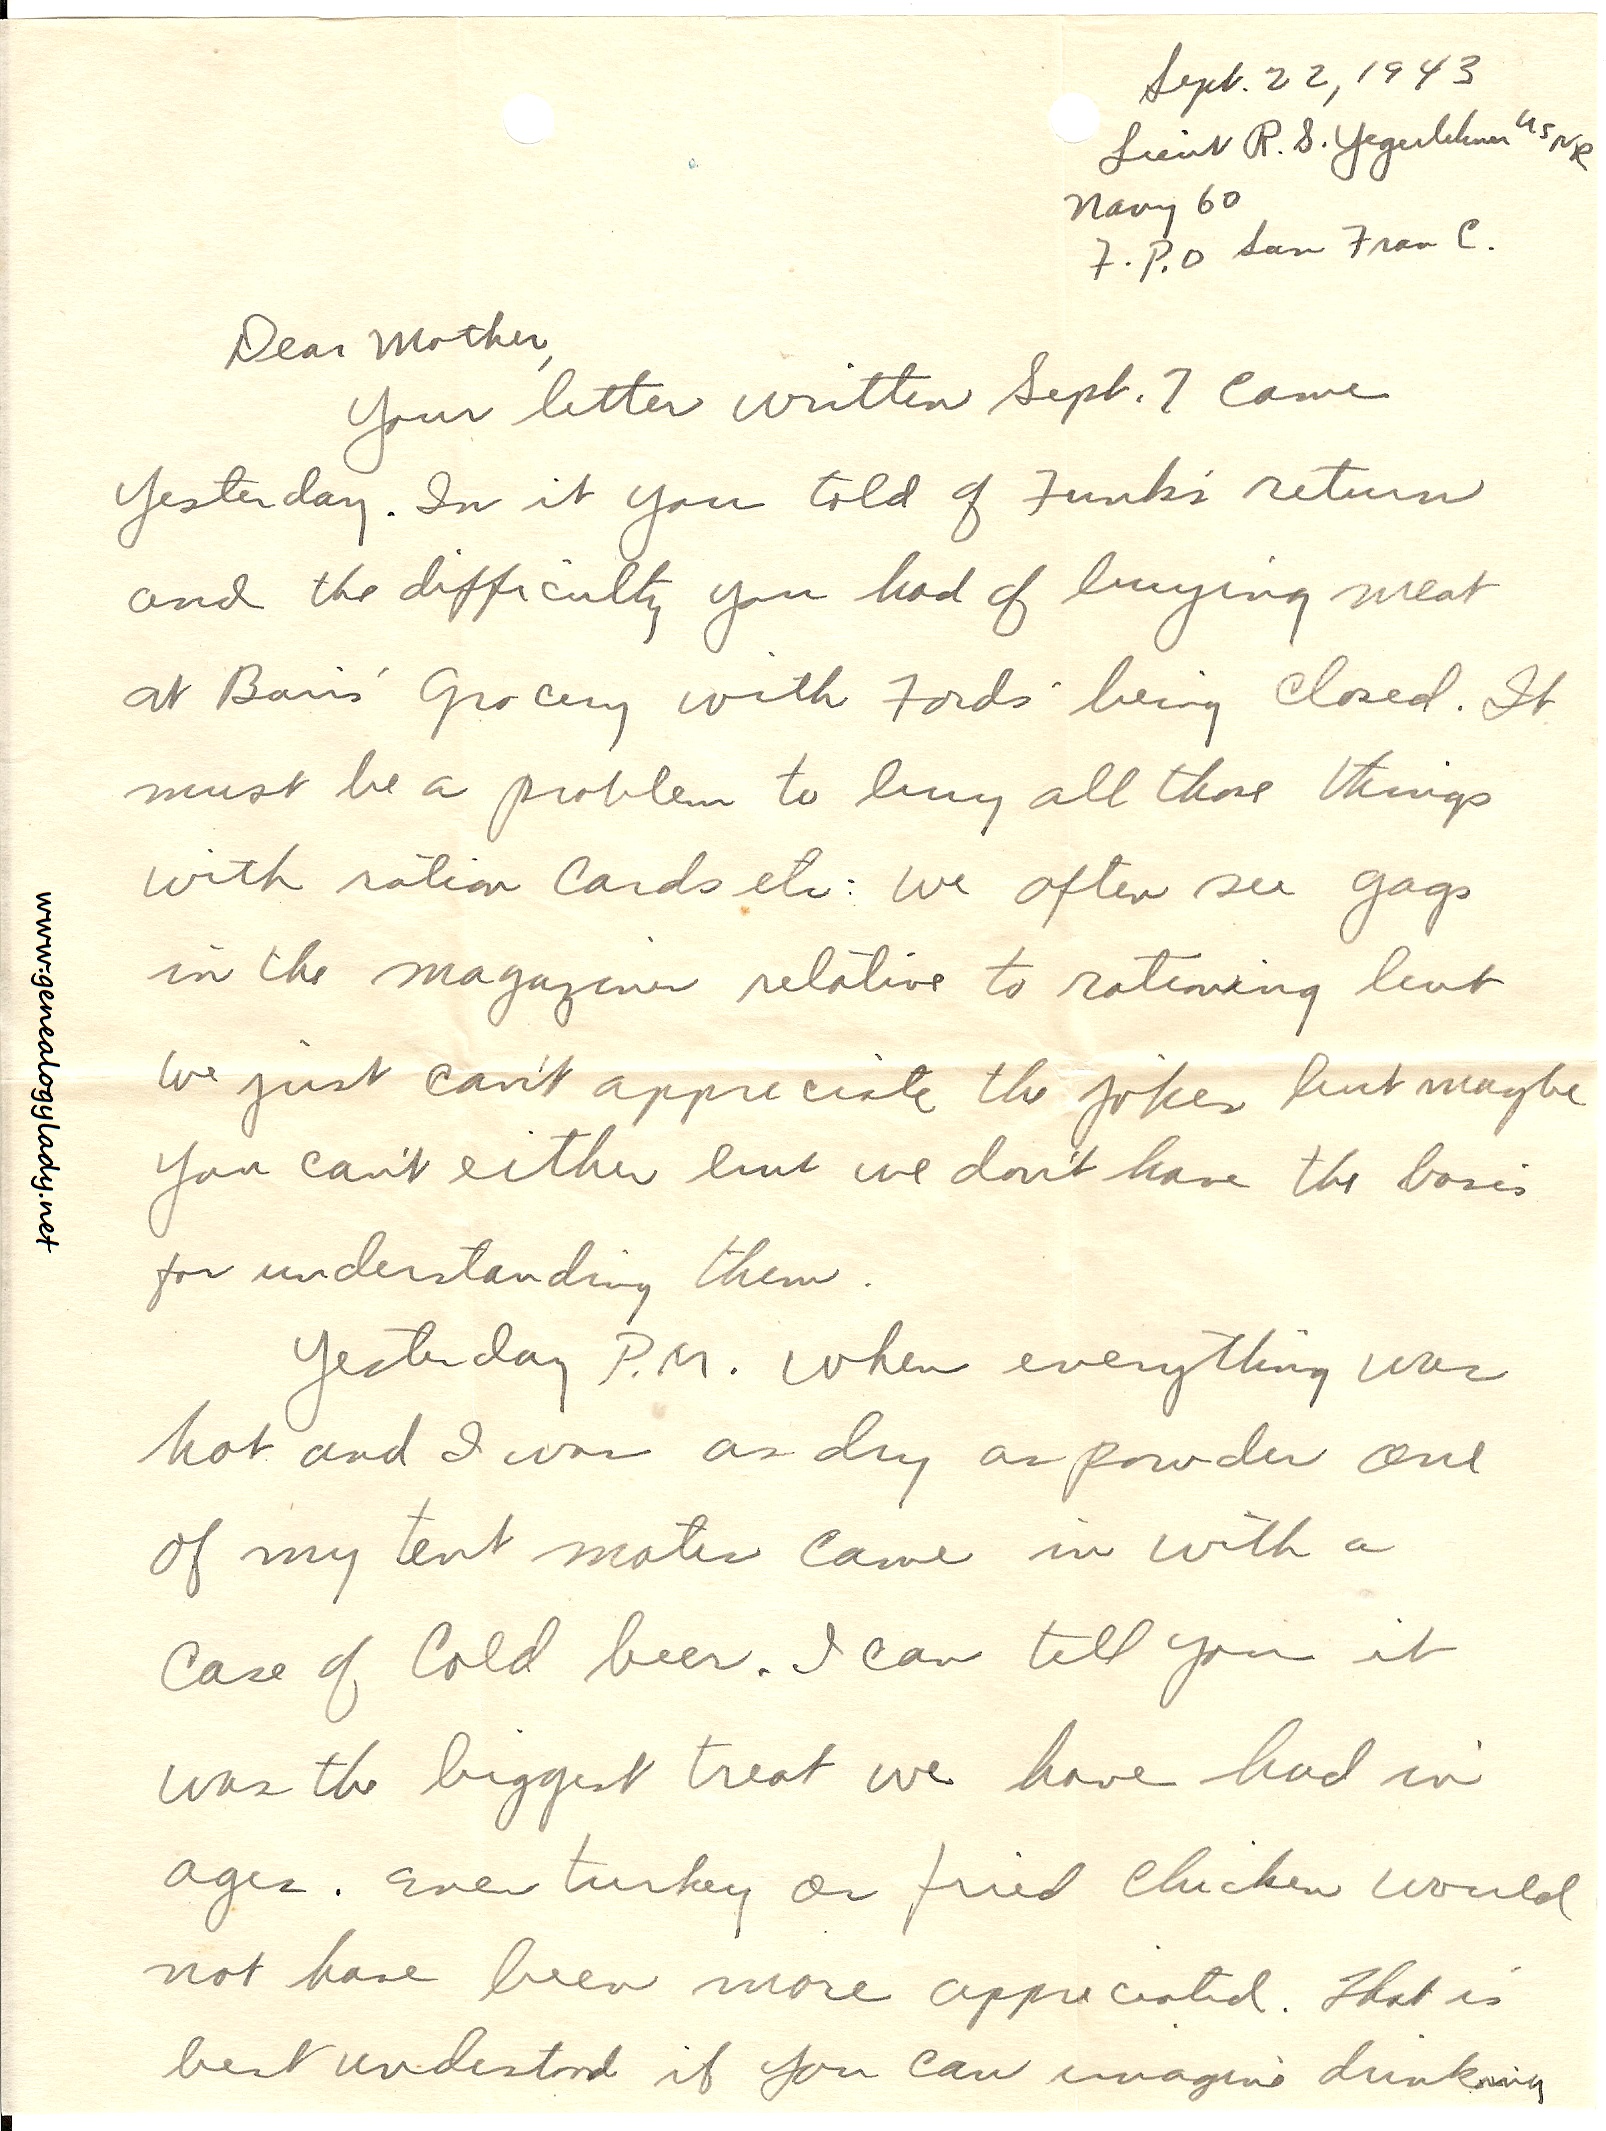 Sept. 22, 1943
Lieut R. S. Yegerlehner USNR
Navy 60
F.P.O San Fran C.
Dear Mother,
Your letter written Sept. 7 came
yesterday. In it you told of Funk's return
and the difficulty you had of buying meat
at Baris' Grocery with Fords' being closed. It
must be a problem to buy all those things
with ration cards etc. We often see gags
in the magazines relative to rationing but
we just can't appreciate the jokes but maybe
you can't either but we don't have the basis
for understanding them.
Yesterday P.M. when everything was
hot and I was as dry as powder one
of my tent mates came in with a
case of cold beer. I can tell you it
was the biggest treat we have had in
ages. Even turkey or fried chicken would
not have been more appreciated. That is
best understood if you can imagine drinking
www.genealogylady.net